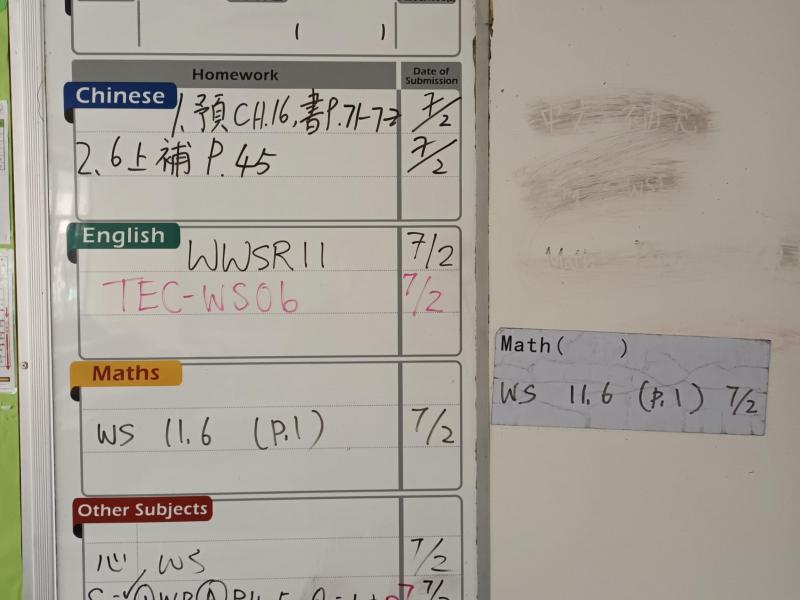 Homework
Date of Submission
Chinese
1.預CH.16,書P.71-73 7/2
2.6上補P.45 7/2
English
WWSR11 7/2
TEC-WS06 7/2
Maths
WS 11.6 (P.1) 7/2
Other Subjects
心.WS 7/2
7/2
Math( )
WS 11.6 (P.1) 7/2